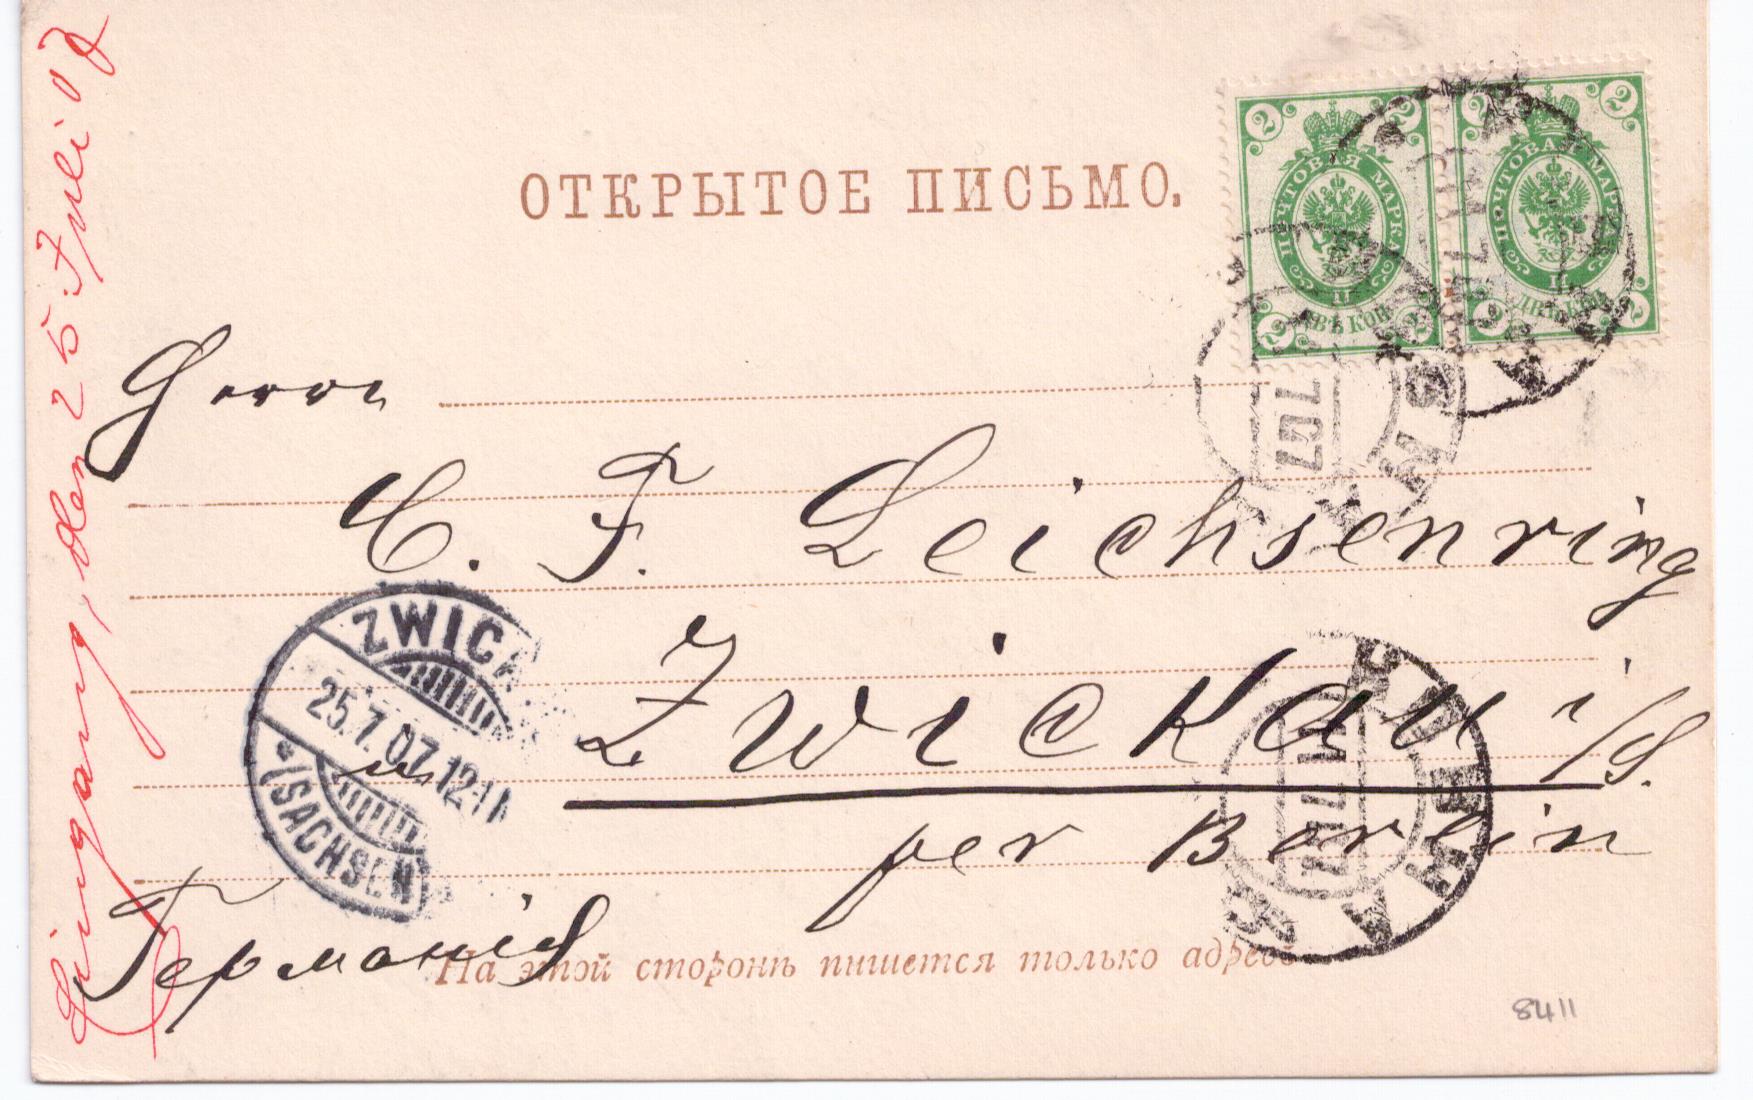 Eingang, den 25 Juli 07
ОТКРЫТОЕ ПИСЬМО.
2 2 2 2
ПОЧТОВАЯ МАРКА
ДВѢ КОП.
2 2 2 2
ПОЧТОВАЯ МАРКА
ДВѢ КОП.
Herrn
C. F. Leichsenring
Zwickau i/S.
per Berlin
ZWICKA
25.7.07. 12-1
*(SACHSEN
07
Германія
На этой сторонѣ пишется только адресъ
8411